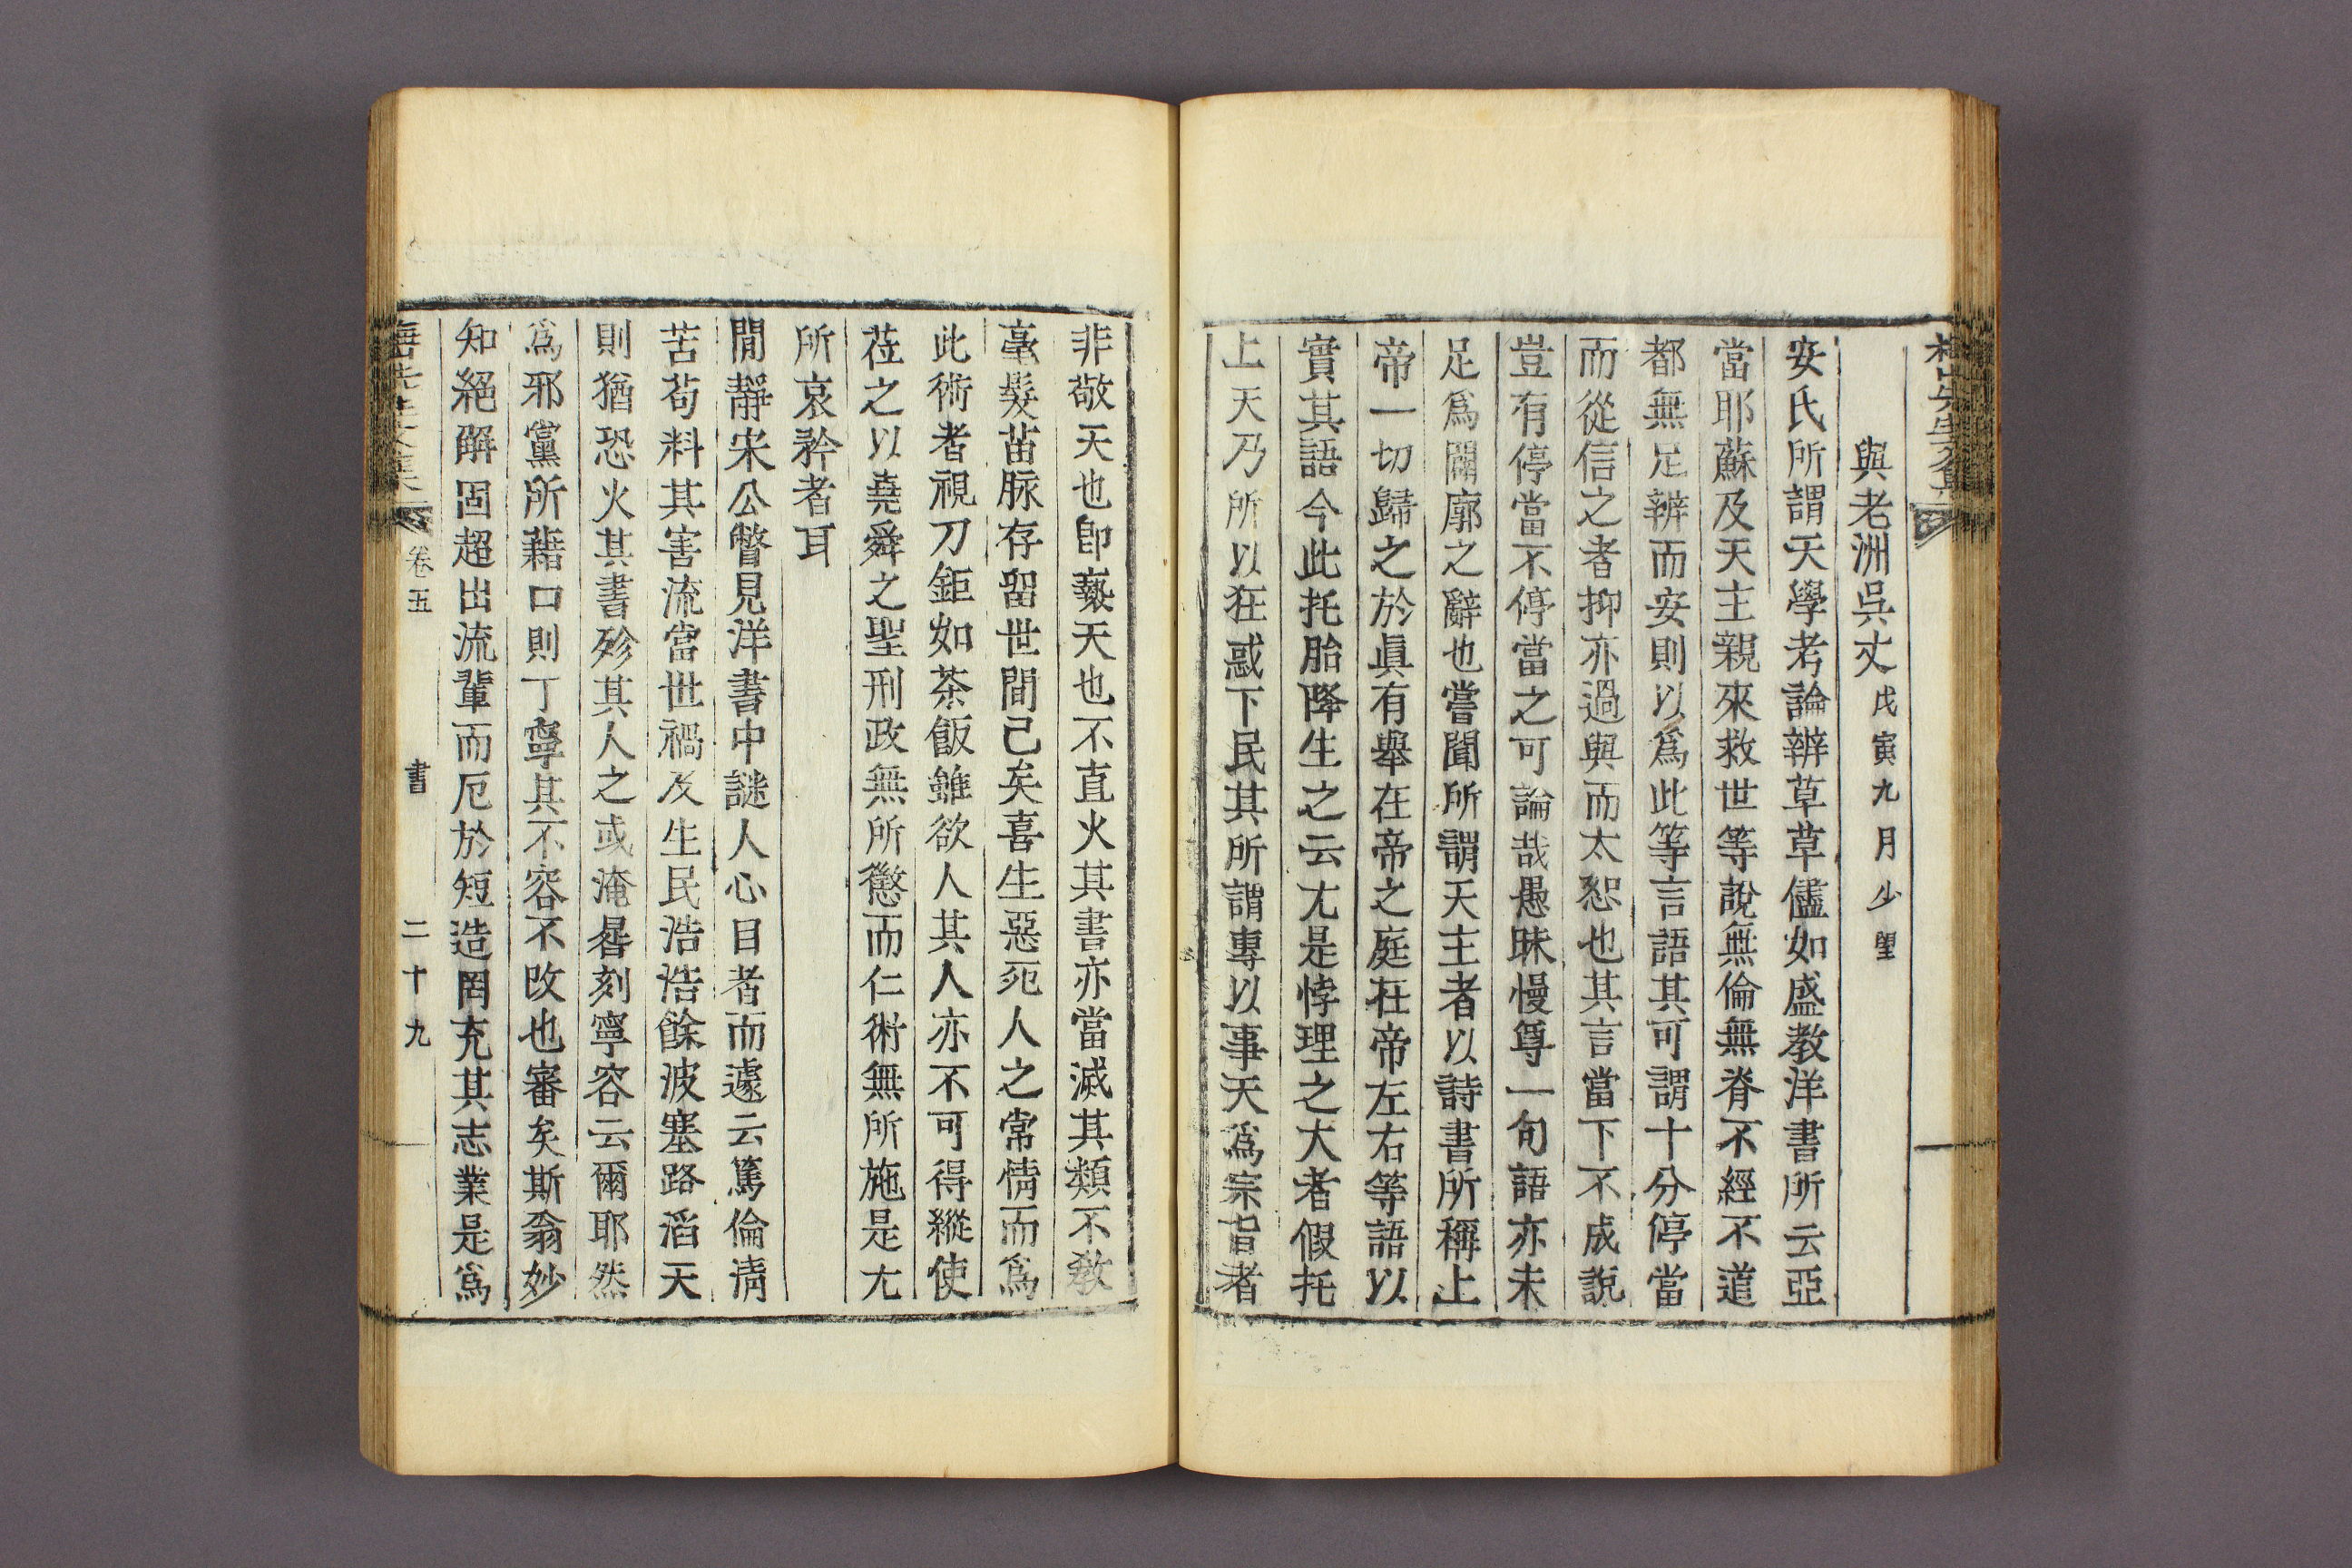 與老洲吳丈戊寅九月少望
安氏所謂天學考論辨草草儘如盛教洋書所云亞
當耶蘇及天主親來救世等說無倫無脊不經不道
都無足辨而安則以爲此等言語其可謂十分停當
而從信之者抑亦過與而太恕也其言當下不成說
豈有停當不停當之可論哉愚昧慢尊一句語亦未
足爲闢廓之辭也嘗聞所謂天主者以詩書所稱上
帝一切歸之於眞有舉在帝之庭在帝左右等語以
實其語今此托胎降生之云尤是悖理之大者假托
上天乃所以狂惑下民其所謂專以事天爲宗旨者
非敬天也卽褻天也不直火其書亦當滅其類不敎
毫髮苗脉存留世間已矣喜生惡死人之常情而爲
此術者視刀鉅如茶飯雖欲人其人亦不可得縱使
莅之以堯舜之聖刑政無所懲而仁術無所施是尤
所哀矜者耳
閒靜宋公瞥見洋書中謎人心目者而遽云篤倫淸
苦苟料其害流當世禍及生民浩浩餘波塞路滔天
則猶恐火其書殄其人之或淹晷刻寧容云爾耶然
爲邪黨所藉口則丁寧其不容不改也審矣斯翁妙
知絕解固超出流輩而厄於短造罔充其志業是爲
卷五 書 二十九